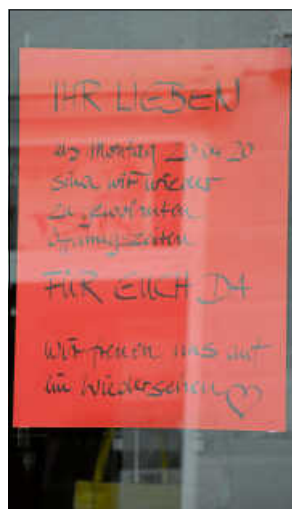 IHR LIEBEN
ab Montag 20.04.20
sind wir wieder
zu gewohnten
Öffnungszeiten
FÜR EUCH DA
Wir freuen uns auf
ein Wiedersehen ♡